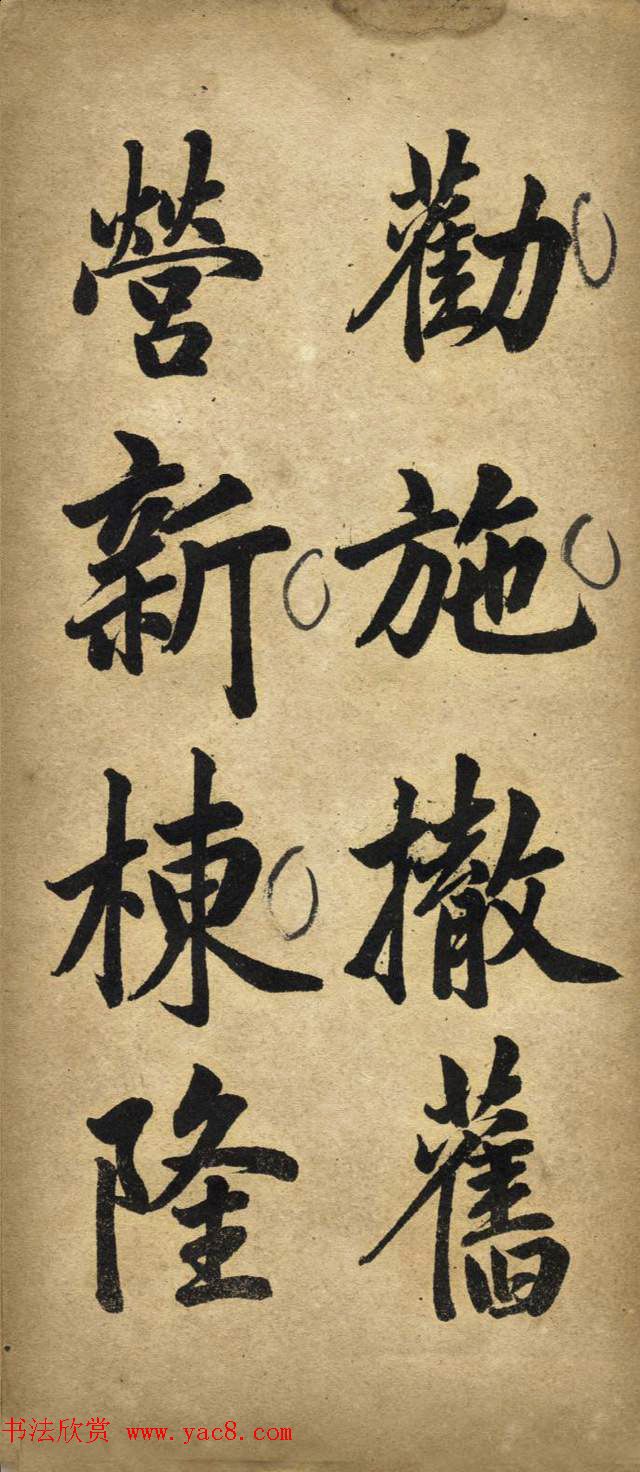 勸施撤舊
營新棟隆
书法欣赏 www.yac8.com